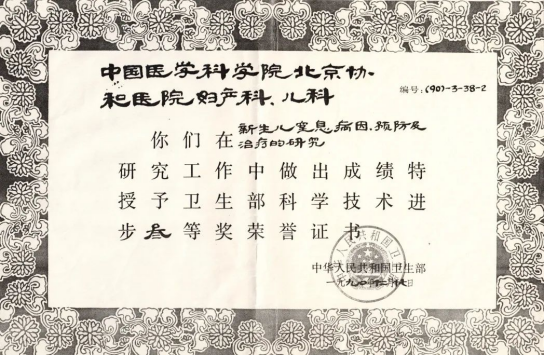 中国医学科学院北京协
和医院妇产科、儿科
编号：(90)-3-38-2
你们在新生儿窒息病因、预防及
治疗的研究
研究工作中做出成绩特
授予卫生部科学技术进
步叁等奖荣誉证书
中华人民共和国卫生部
一九九〇年十二月廿七日